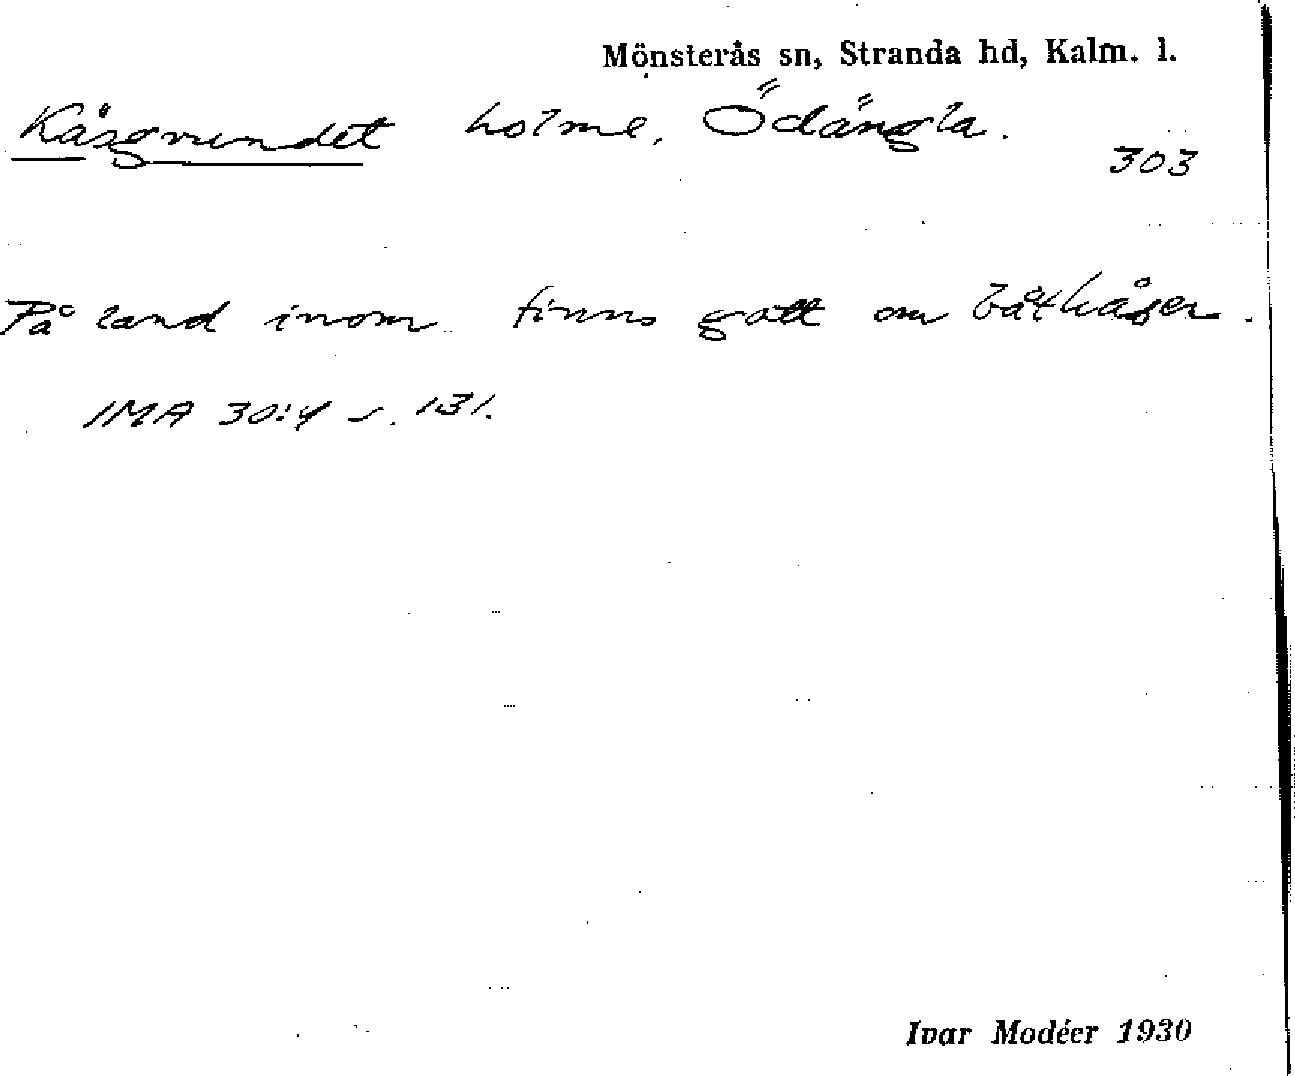 Mönsterås sn, Stranda hd, Kalm. l.
Kåsgrundet holme, Ödängla.
303
På land inom finns gott om båtkåser.
IMA 30:4 s. 131.
Ivar Modéer 1930